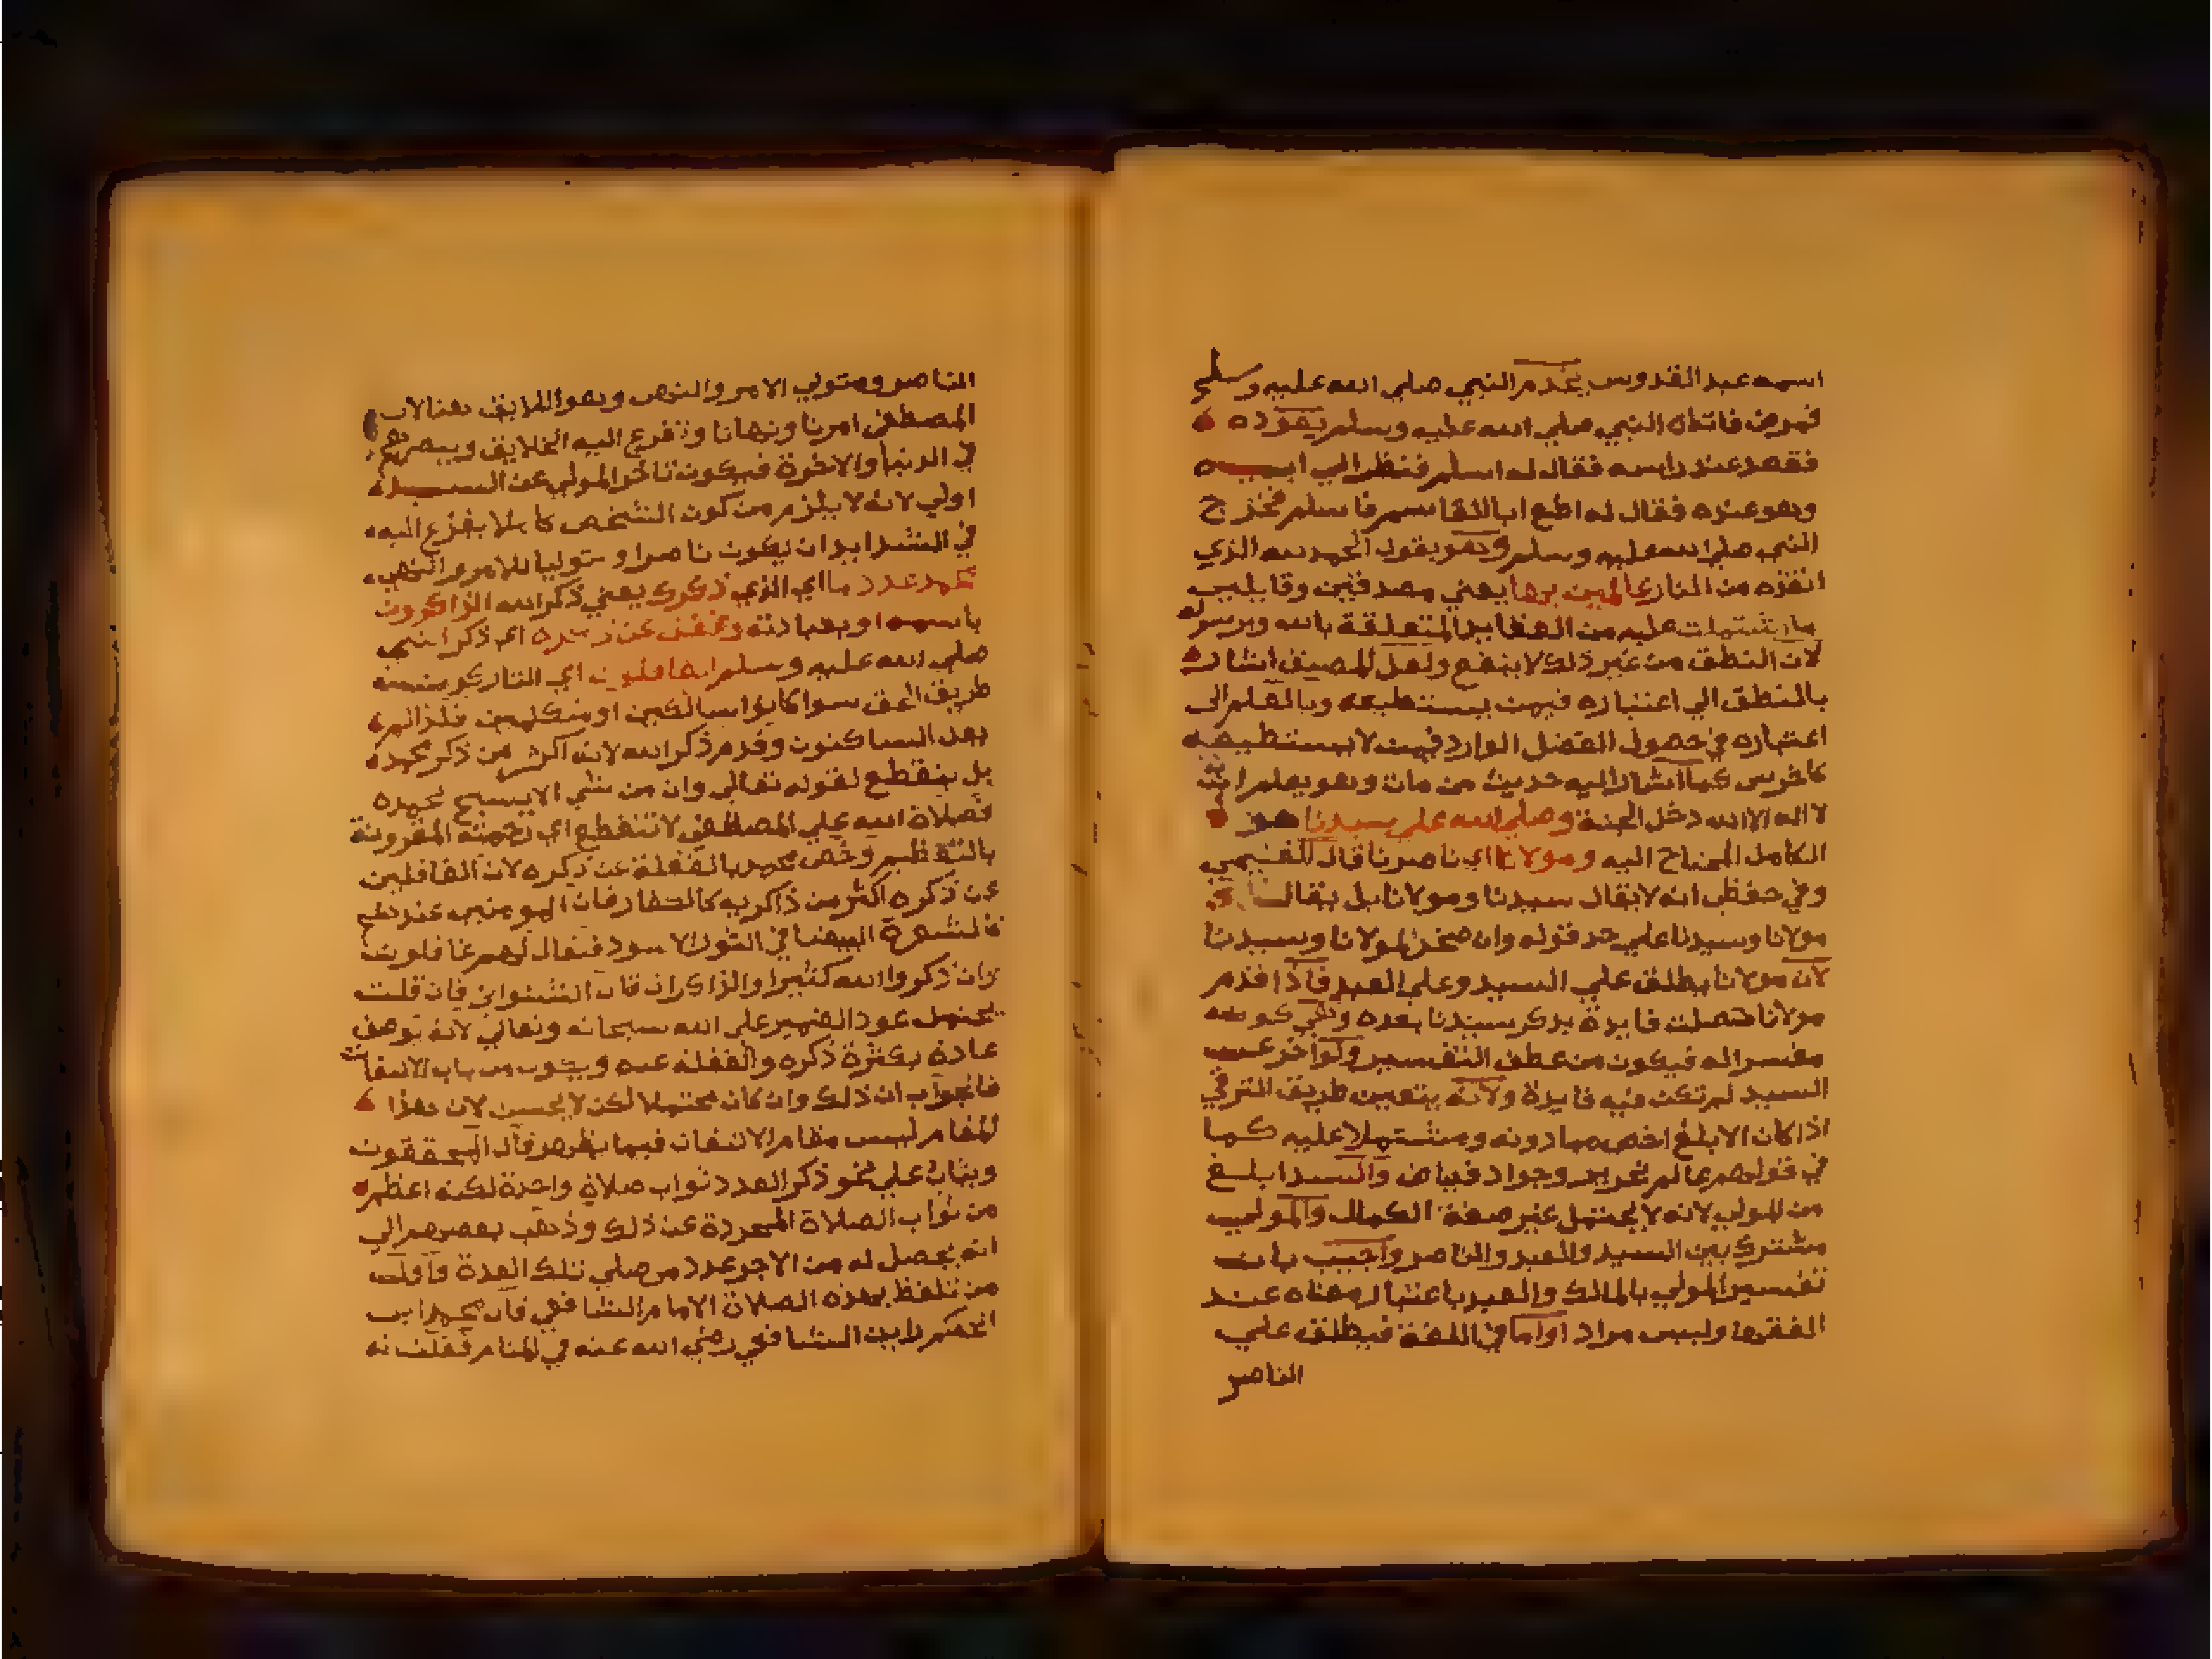 اسمه عبد القدوس يخدم النبي صلي الله عليه وسلم
فمرض فاتاه النبي صلي الله عليه وسلم يعوده
فقعد عند راسه فقال له اسلم فنظر الي ابيه
وهو عنده فقال له اطع ابا القاسم فاسلم فخرج
النبي صلي الله عليه وسلم وهو يقول الحمد لله الذي
انقذه من النار عالمين بها يعني مصدقين وقايلين
ما اشتملت عليه من العقايد المتعلقة بالله وبرسوله
لان النطق من غير ذلك لا ينفع ولعل المصنف اشار
بالنطق الي اعتباره فيمن يستطيعه وبالعلم الى
اعتباره في حصول الفضل الوارد فيمن لا يستطيعه
كاخرس كما اشار اليه حديث من مات وهو يعلم ان
لا اله الا الله دخل الجنة وصلي الله علي سيدنا هو
الكامل المحتاج اليه ومولانا اي ناصرنا قال الغنيمي
وفي حفظي انه لا يقال سيدنا ومولانا بل يقال
مولانا وسيدنا علي حد قوله وان صخرا لمولانا وسيدنا
لان مولانا يطلق علي السيد وعلي العبد فاذا قدم
مولانا حصلت فايدة بذكر سيدنا بعده وهي كونه
مفسرا له فيكون من عطف التفسير ولو اخر عن
السيد لم تكن فيه فايدة ولانه يتعين طريق الترقي
اذا كان الابلغ اخص مما دونه ومشتملا عليه كما
في قولهم عالم نحرير وجواد فياض والسيد ابلغ
من المولي لانه لا يحتمل غير صفة الكمال والمولي
مشترك بين السيد والعبد والناصر واجيب بان
تفسير المولي بالمالك والعبد باعتبار معناه عند
الفقها وليس مراد اواما في اللغة فيطلق علي
الناصر
الناصر ومتولي الامر والنهي وهو اللايق هنا لان
المصطفى امرنا ونهانا وتفزع اليه الخلايق وينصرهم
في الدنيا والاخرة فيكون تاخر المولي عن السيد
اولي لانه لا يلزم من كون الشخص كاملا يفزع اليه
في الشدايد ان يكون ناصرا ومتوليا للامر والنهي
محمد عدد ما اي الذي ذكرك يعني ذكر الله الذاكرون
باسمه او بعبادته وغفل عن ذكره اي ذكر النبي
صلي الله عليه وسلم الغافلون اي التاركون
طريق الحق سوا كانوا ساكتين او متكلمين
بعد الساكنون وقدم ذكر الله لانه اكثر من ذكر محمد
بل ينقطع لقوله تعالي وان من شي الا يسبح بحمده
فصلاة الله علي المصطفى لا تنقطع اي رحمته المقرونة
بالتعظيم وخص محمد بالغفلة عن ذكره لان الغافلين
عن ذكره اكثر من ذاكريه كالكفار فان المومنين عندهم
كالشعرة البيضا في الثور الاسود فيقال لهم غافلون
وان ذكروا الله كثيرا والذاكران قال الشنواني فان قلت
يحتمل عود الضمير علي الله سبحانه وتعالي لانه يوصف
عادة بكثرة ذكره والغفلة عنه ويكون من باب الالتفات
فالجواب ان ذلك وان كان محتملا لكن لا يحسن لان هذا
المقام ليس مقام الالتفات فيما يظهر قال المحققون
ويثاب علي نحو ذكر العدد ثواب صلاة واحدة لكنه اعظم
من ثواب الصلاة المجردة عن ذلك وذهب بعضهم الي
انه يحصل له من الاجر عدد من صلي تلك العدة واول
من تلفظ بهذه الصلاة الامام الشافعي قال محمد ابن
الحكم رايت الشافعي رضي الله عنه في المنام فقلت له